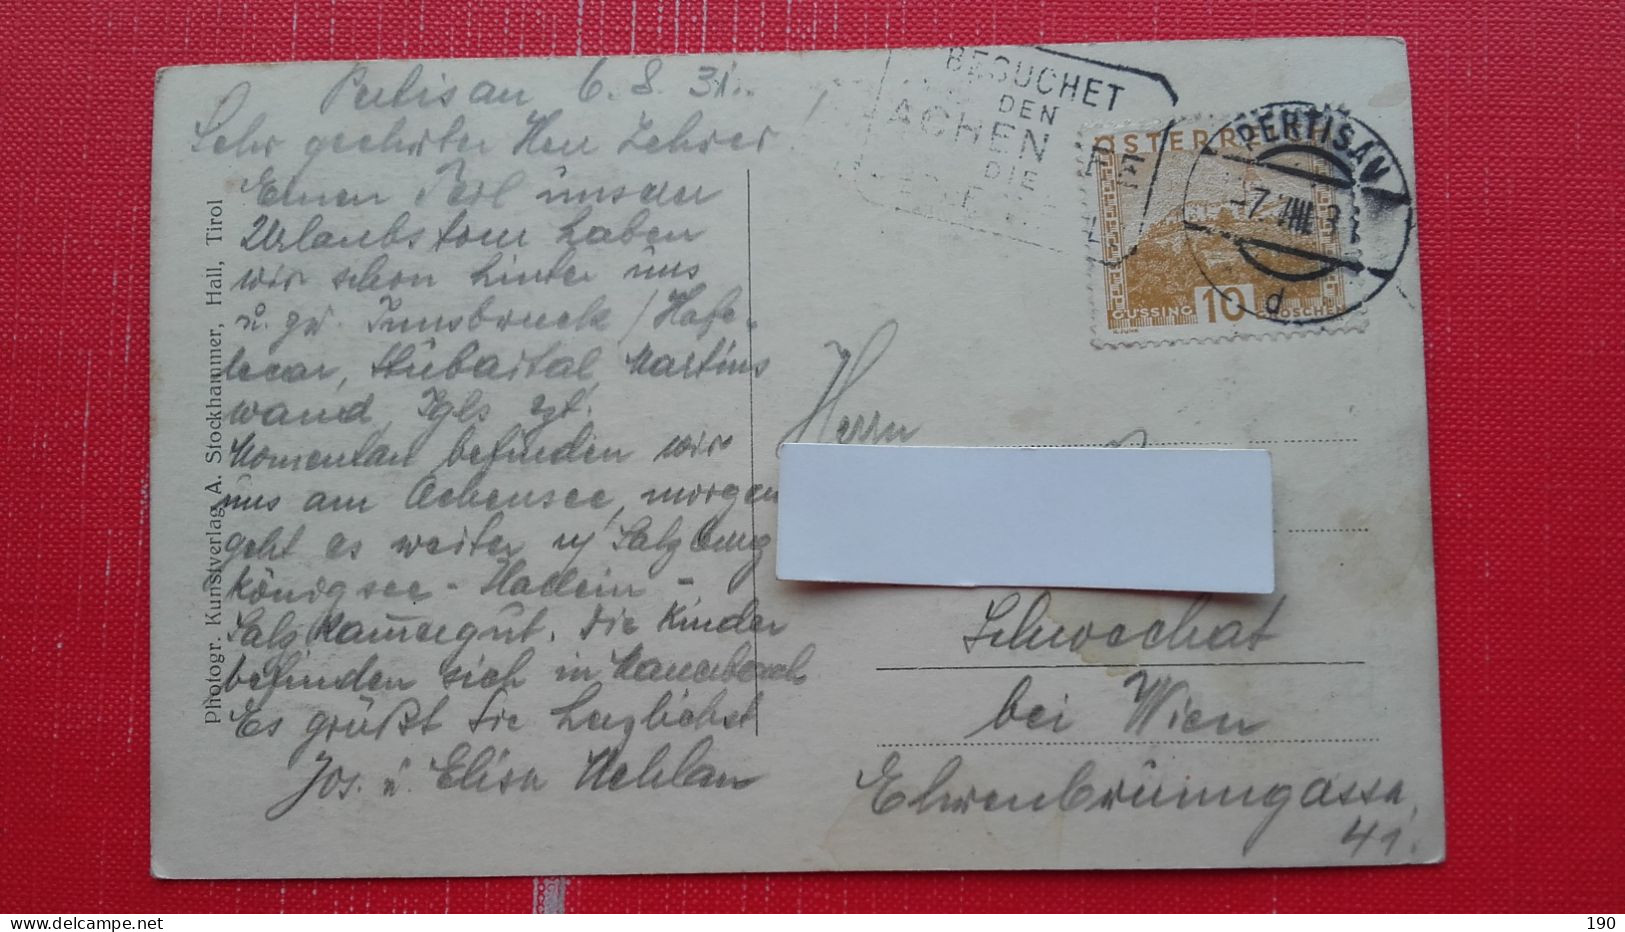 Pertisan 6. 8. 31.
Sehr geehrter Herr Zehrer!
Einen Teil unserer
Urlaubstour haben
wir schon hinter uns
u. zw. Innsbruck / Hafe-
lecar, Stubaital Martins
wand, Igls
Momentan befinden wir
uns am Achensee, morgen
geht es weiter n/ Salzburg
Königsee - Hallein -
Salzkammergut. Die Kinder
befinden sich in
Es grüßt Sie herzlichst
Jos. u. Elisa
Photogr. Kunstverlag A. Stockhammer, Hall, Tirol
BESUCHET
DEN
ACHEN
DIE
ÖSTERREICH
GÜSSING 10 GROSCHEN
PERTISAU
-7.VIII.31
d
Herrn
Schwechat
bei Wien
Ehrenbrunngasse
41.
190